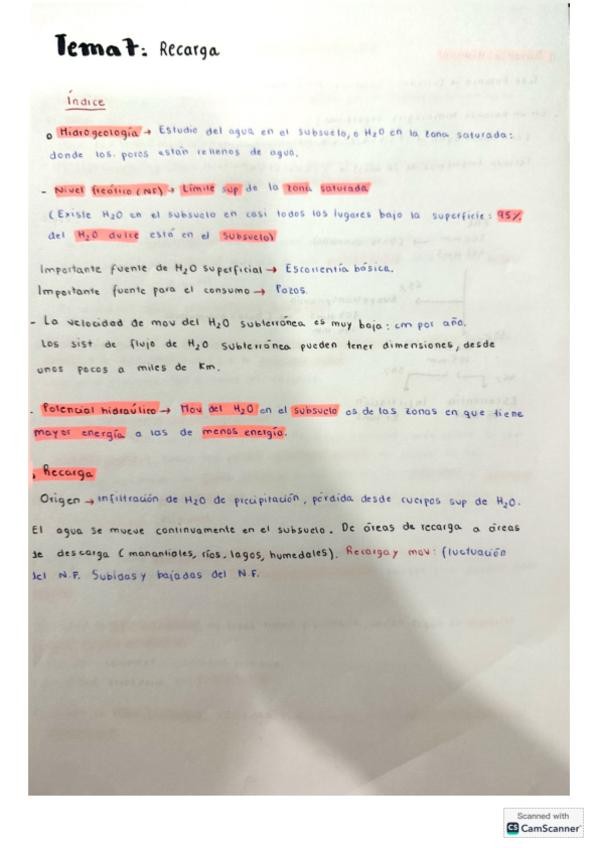 Tema 7: Recarga
Índice
o Hidrogeología → Estudio del agua en el subsuelo, o H2O en la zona saturada:
donde los poros están rellenos de agua.
- Nivel freático (NF) → Límite sup de la zona saturada
(Existe H2O en el subsuelo en casi todos los lugares bajo la superficie: 95%
del H2O dulce está en el subsuelo)
Importante fuente de H2O superficial → Escorrentía básica.
Importante fuente para el consumo → Pozos.
- La velocidad de mov del H2O subterránea es muy baja: cm por año.
Los sist de flujo de H2O subterránea pueden tener dimensiones, desde
unos pocos a miles de Km.
- Potencial hidraúlico → Mov del H2O en el subsuelo es de las zonas en que tiene
mayor energía a las de menos energía.
. Recarga
Origen → infiltración de H2O de precipitación, pérdida desde cuerpos sup de H2O.
El agua se mueve continuamente en el subsuelo. De áreas de recarga a áreas
de descarga (manantiales, ríos, lagos, humedales). Recarga y mov: fluctuación
del N.F. Subidas y bajadas del N.F.
Scanned with
CS CamScanner